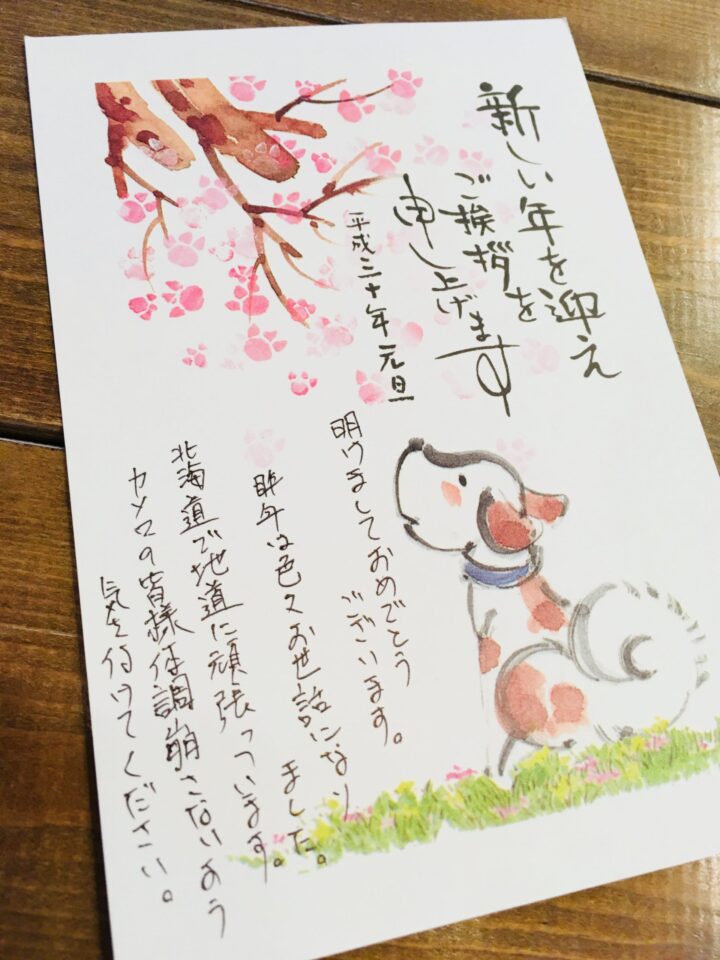 新しい年を迎え
ご挨拶を
申し上げます
平成三十年元旦
明けましておめでとう
ございます。
昨年は色々お世話になり
ました。
北海道で地道に頑張っています。
カメロの皆様体調崩さないよう
気を付けてください。